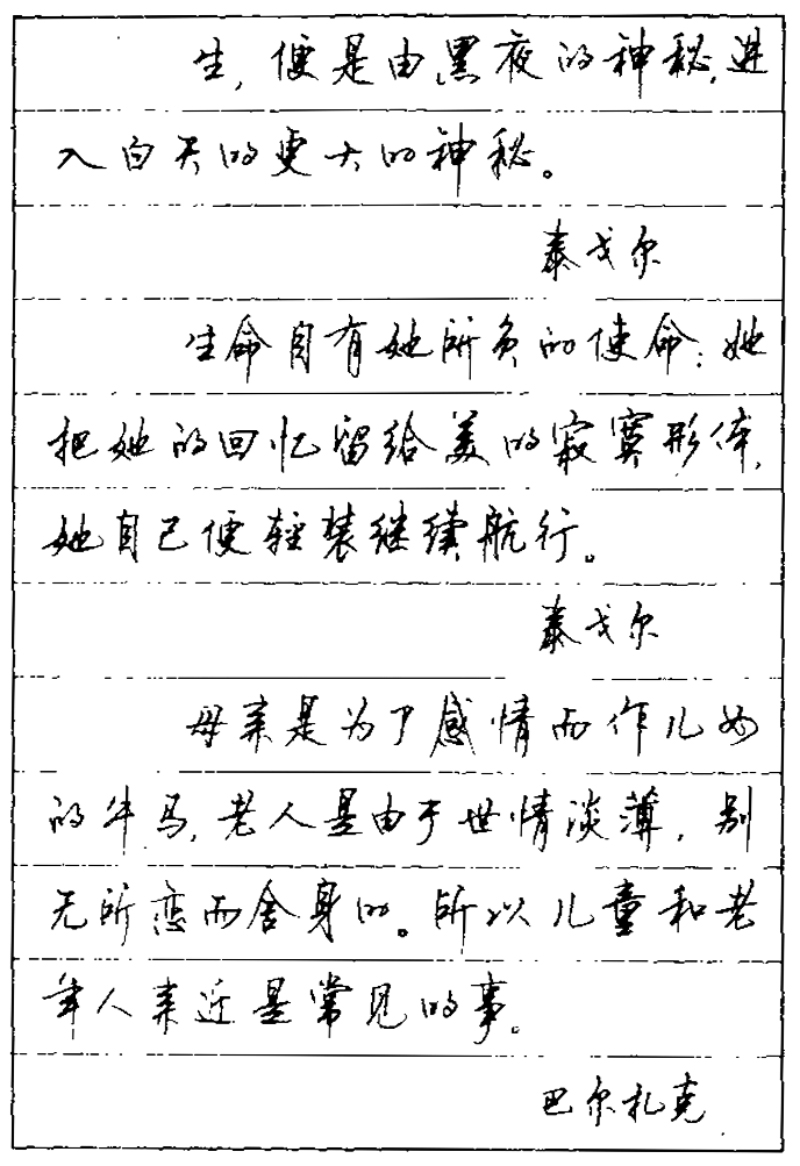 生，便是由黑夜的神秘，进
入白天的更大的神秘。
泰戈尔
生命自有她所负的使命：她
把她的回忆留给美的寂寞形体，
她自己便轻装继续航行。
泰戈尔
母亲是为了感情而作儿女
的牛马，老人是由于世情淡薄，别
无所恋而舍身的。所以儿童和老
年人亲近是常见的事。
巴尔扎克